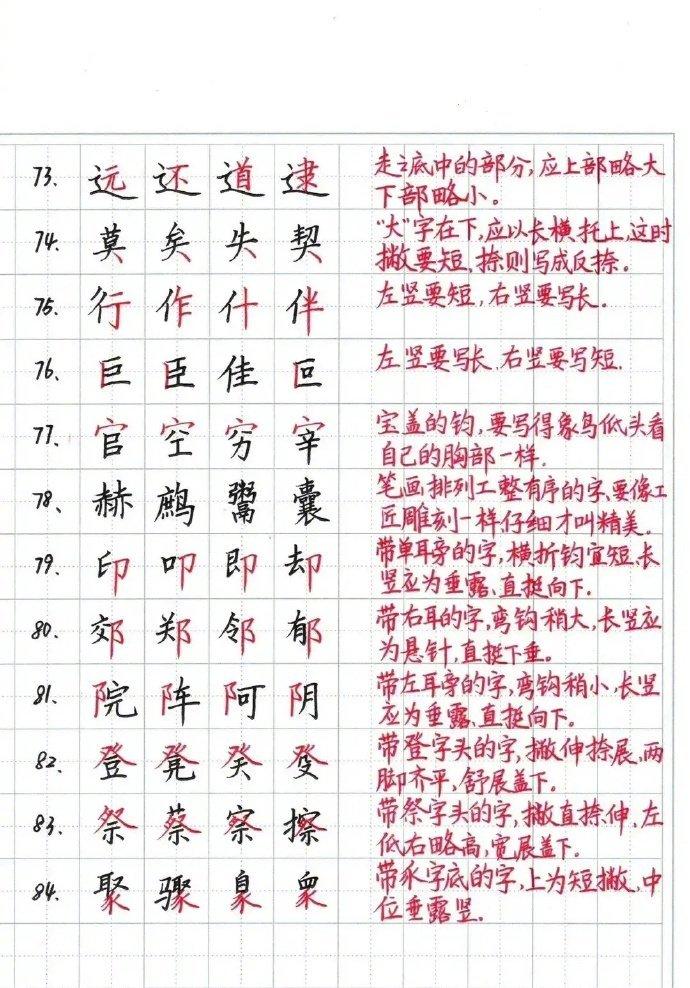 73、 远 还 道 逮 走之底中的部分，应上部略大
下部略小。
74、 莫 矣 失 契 "大"字在下，应以长横托上，这时
撇要短、捺则写成反捺。
75、 行 作 什 伴 左竖要短，右竖要写长。
76、 巨 臣 佳 叵 左竖要写长、右竖要写短.
77、 官 空 穷 宰 宝盖的钩，要写得象鸟低头看
自己的胸部一样.
78、 赫 鹧 鬻 囊 笔画排列工整有序的字、要像工
匠雕刻一样仔细才叫精美.
79、 印 叩 即 却 带单耳旁的字，横折钩宜短、长
竖应为垂露、直挺向下.
80、 郊 郑 邻 郁 带右耳的字，弯钩稍大，长竖应
为悬针，直挺下垂。
81、 院 阵 阿 阴 带左耳旁的字，弯钩稍小，长竖
应为垂露、直挺向下。
82、 登 凳 癸 带登字头的字，撇伸捺展，两
脚齐平，舒展盖下。
83、 祭 蔡 察 擦 带祭字头的字，撇直捺伸、左
低右略高，宽展盖下。
84、 聚 骤 臮 衆 带乑字底的字，上为短撇，中
位垂露竖.